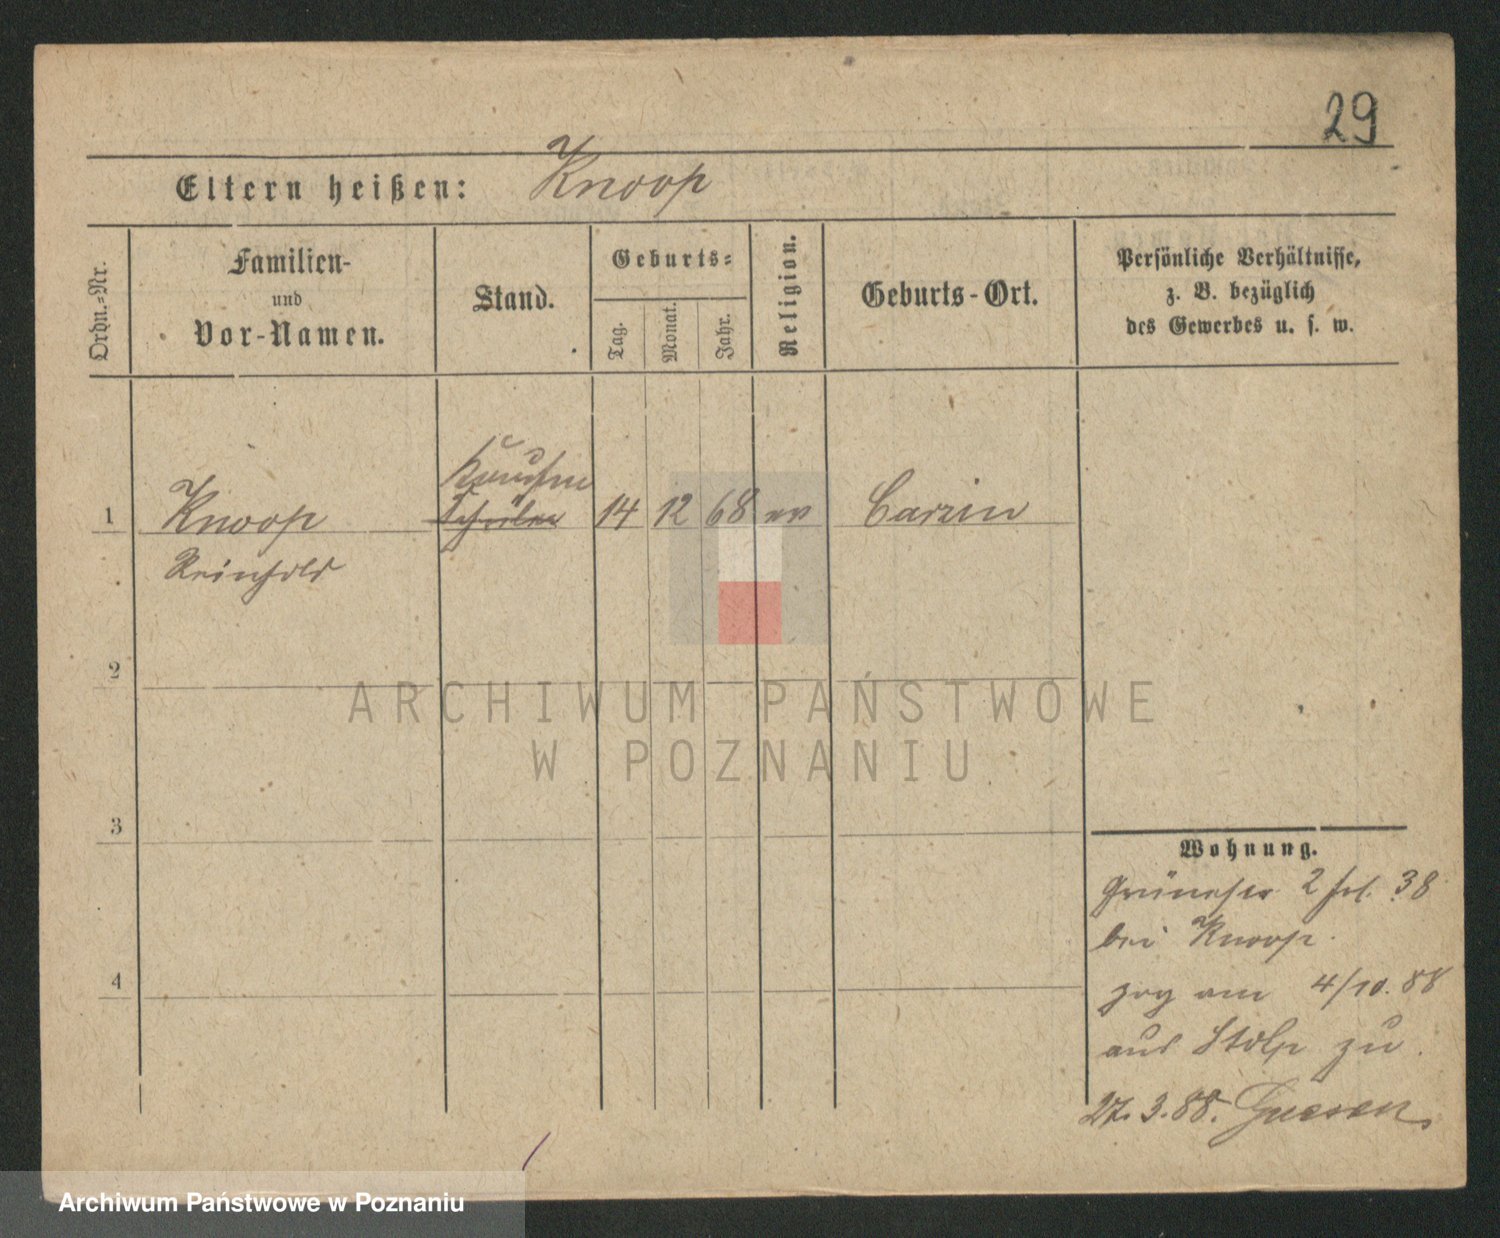 29
Eltern heißen: Knoop
Ordn.=Nr.
Familien-
und
Vor-Namen.
Stand.
Geburts=
Tag.
Monat.
Jahr.
Religion.
Geburts-Ort.
Persönliche Verhältnisse,
z. B. bezüglich
des Gewerbes u. s. w.
Kaufm
1 Knoop Schüler 14 12 68 ev Carzin
Reinhold
2
3
4
Wohnung.
2 38
bei Knoop.
zog am 4/10. 88
aus Stolp zu.
27. 3. 88. Gnesen
ARCHIWUM PAŃSTWOWE
W POZNANIU
Archiwum Państwowe w Poznaniu